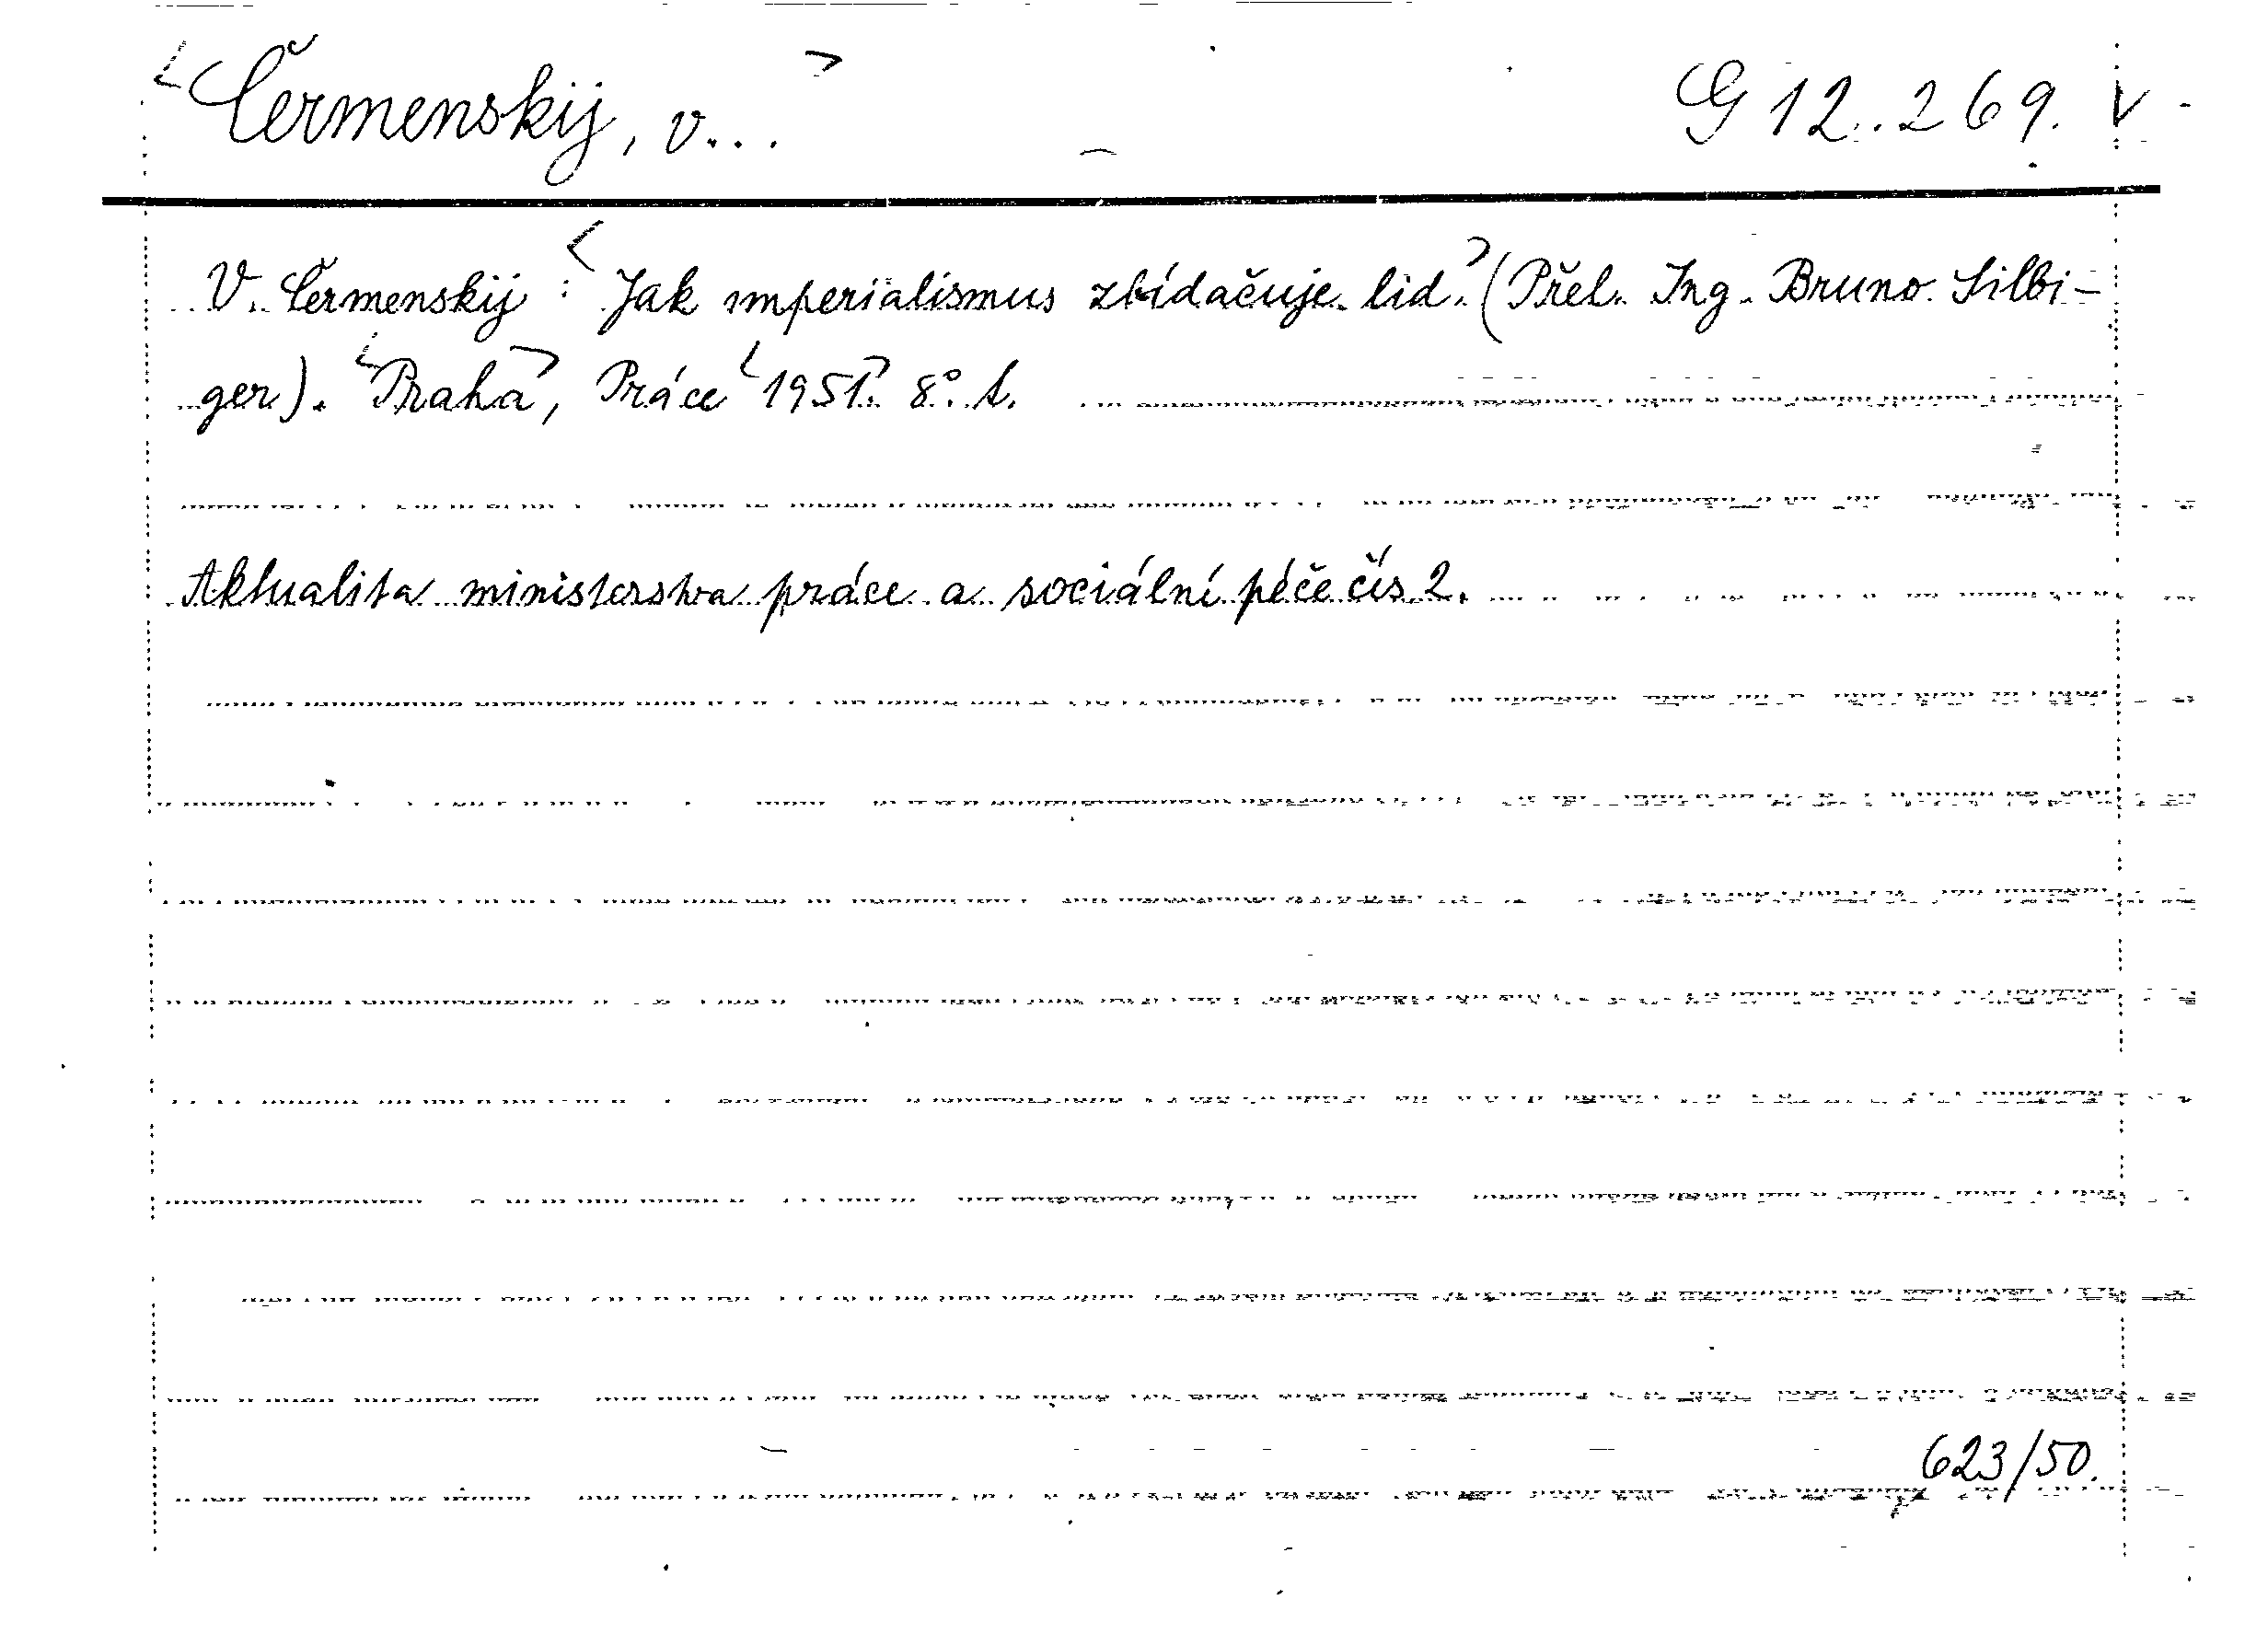 <Čermenskij, V...> G 12.269. V
V. Čermenskij: <Jak imperialismus zbídačuje lid.> (Přel. Ing. Bruno Silbi-
ger). <Praha>, Práce <1951.> 8°.
Aktualita ministerstva práce a sociální péče čís 2.
623/50.